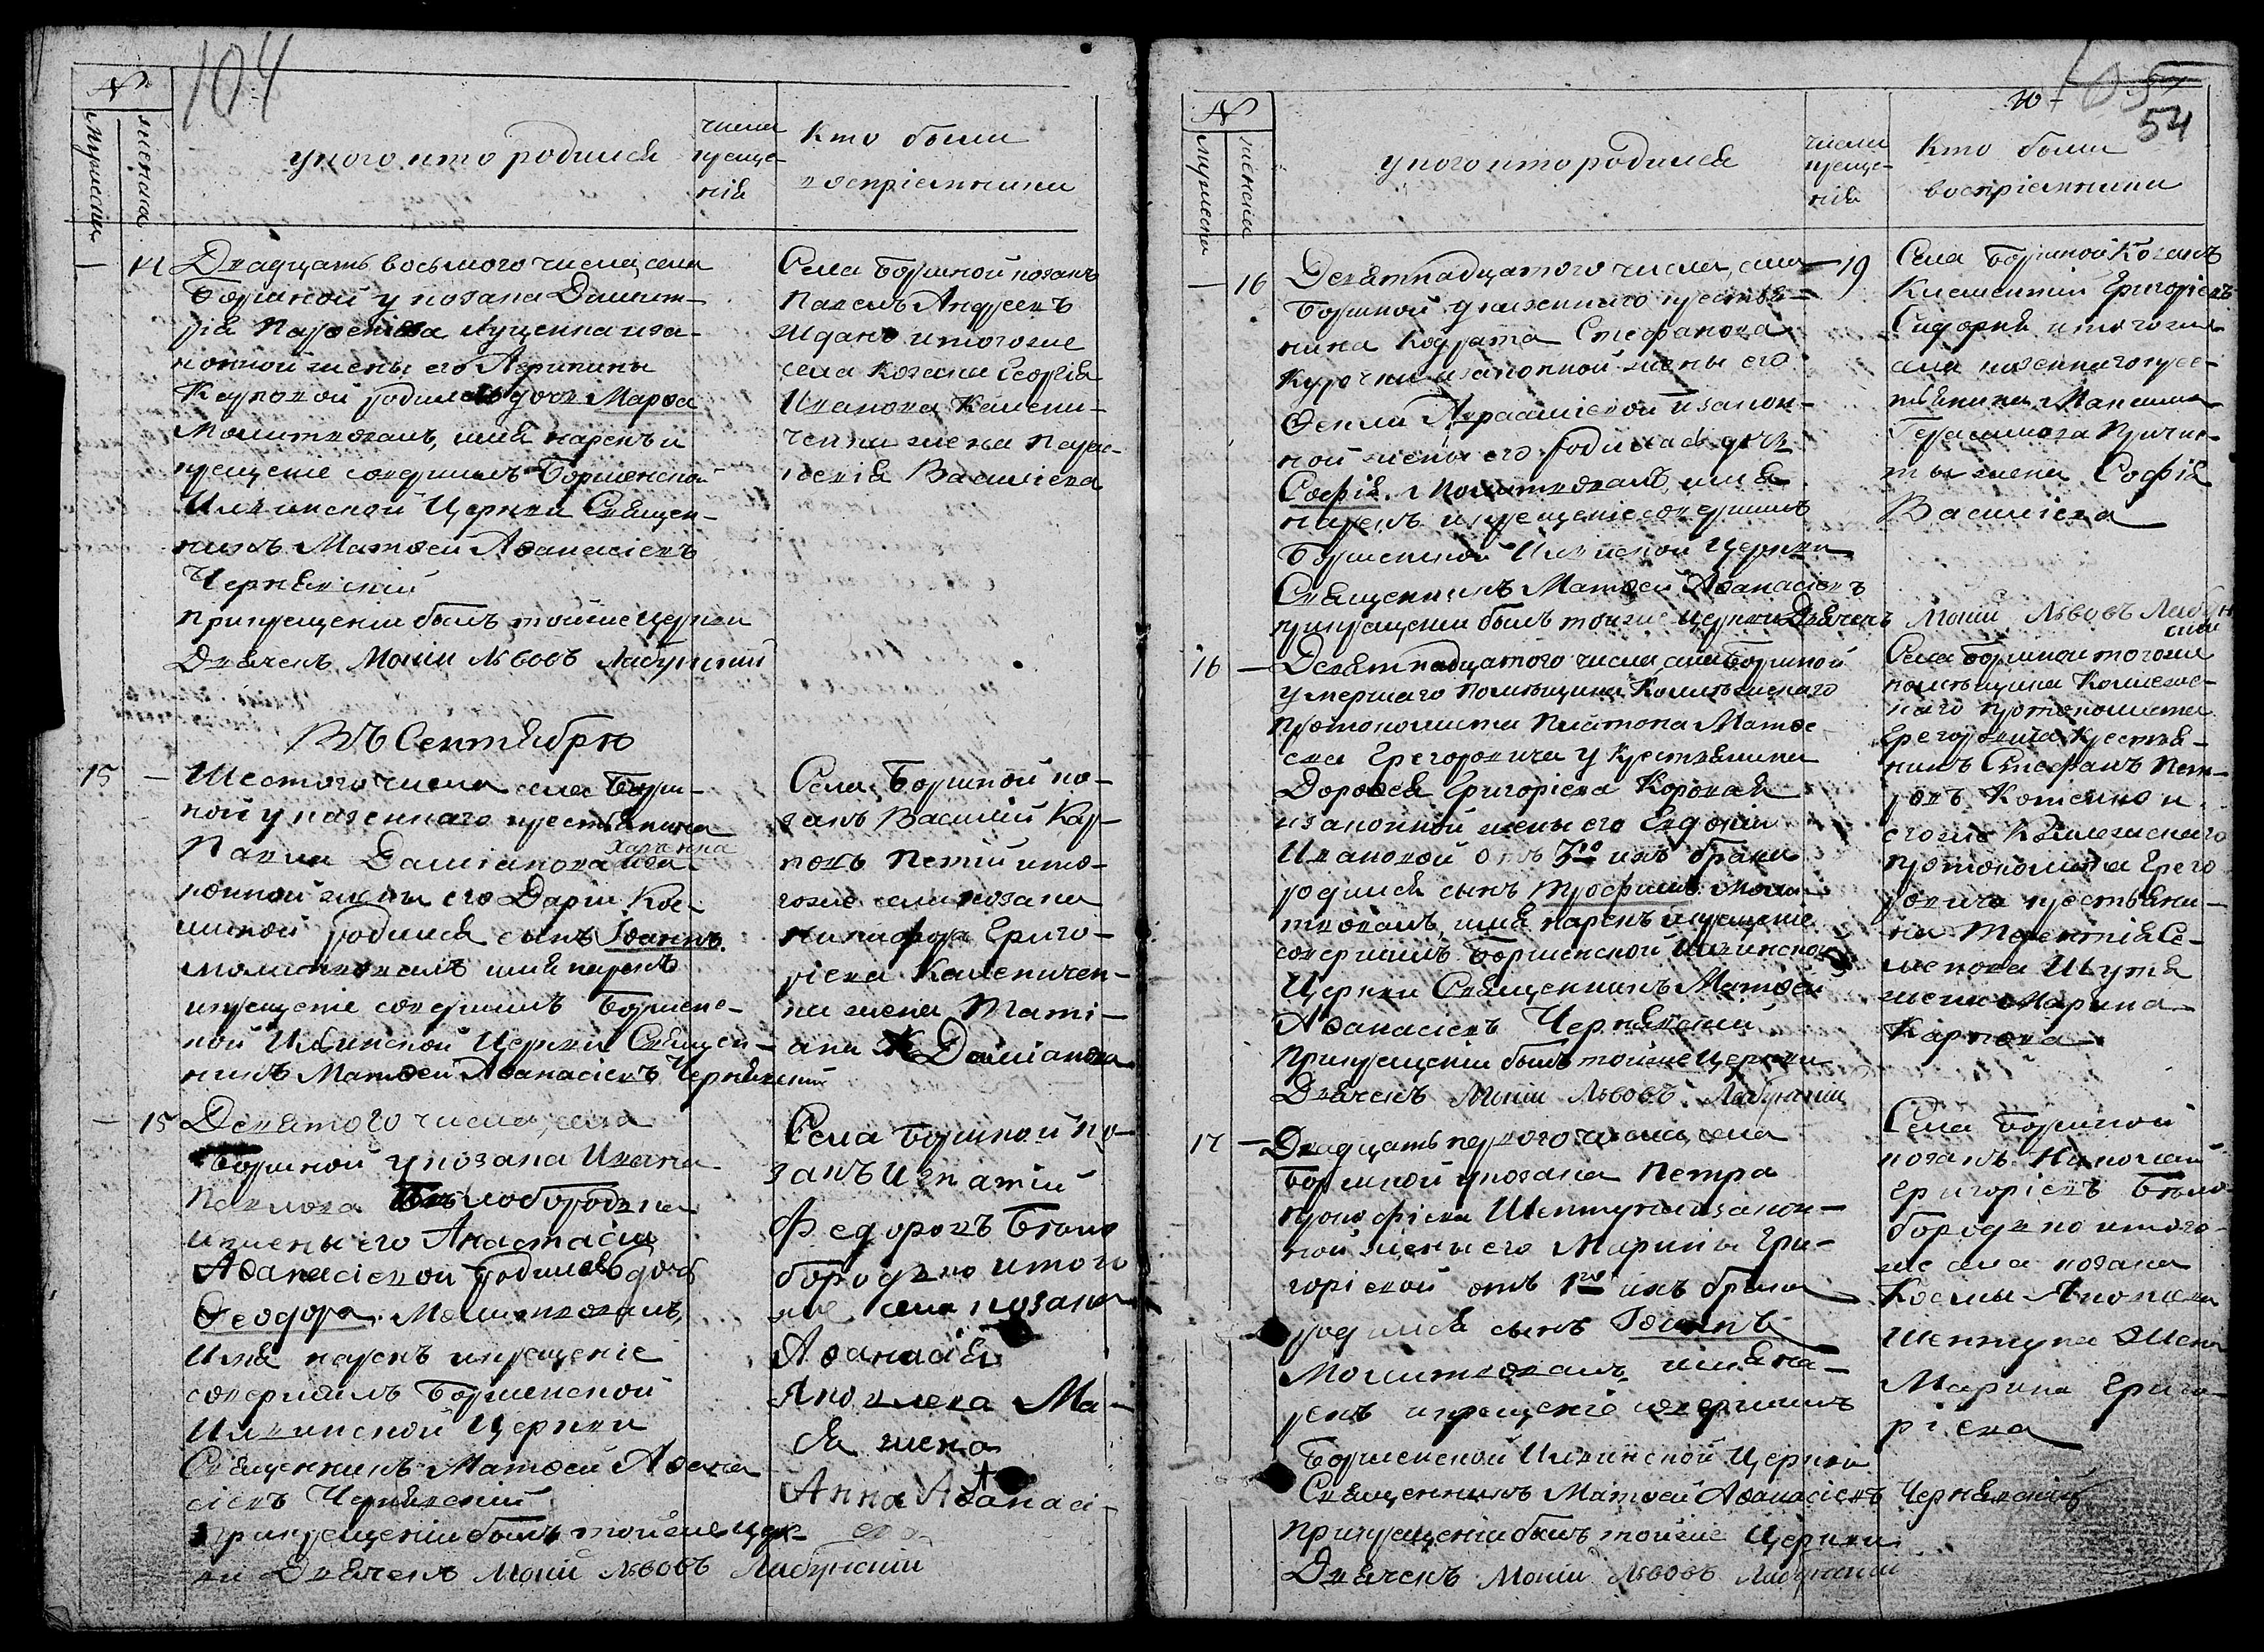 104
№
мужеска
женска
у кого кто родился
числа
креще-
нія
Кто были
воспріемники
— 14 Двадцать восьмого числа, села
Боршной у козака Димит-
рія Парфенієва Луценка и за-
конной жены его Агрипины
Карповой родилась дочь Марфа
Молитвовалъ, имя нарекъ и
крещеніе совершилъ Боршенской
Илинской Церкви Священ-
никъ Матфей Афанасіевъ
Чернявскій
При крещеніи былъ тойже Церкви
Дьячекъ Мокій Львовъ Лабунскій
Села Боршной козакъ
Павелъ Андреевъ
Жданъ и тогоже
села козака Георгія
Иванова Каленич-
ченка жена Парас-
кевія Василіева
Въ Сентябрѣ
15 — Шестого числа села Борш-
ной у казенного крестьянина
Павла Даміанова
и за-
конной жены его Даріи Кос-
миной родился сынъ Іоаннъ
молитвовалъ имя нарекъ
и крещеніе совершилъ Боршенс-
кой Илинской Церкви Священ-
никъ Матфей Афанасіевъ Чернявскій
Села Боршной ко-
закъ Василій Кар-
повъ и то-
гоже села козака
Никифора Григо-
ріева Каленичен-
ка жена Таті-
ана Даміанова
— 15 Девятого числа, села
Боршной у козака Ивана
Павлова Бѣлобородька
и жены его Анастасіи
Афанасіевой родилась дочь
Феодора. Молитвовалъ,
Имя нарекъ и крещеніе
совершилъ Боршенской
Илинской Церкви
Священникъ Матфей Афана
сіевъ Чернявскій
При крещеніи былъ тойже Цер-
кви Дьячекъ Мокій Львовъ Лабунскій
Села Боршной ко-
закъ Игнатій
Федоровъ Бѣло
бородько и того
же села козака
Афанасія
Яковлева
жена
Анна Афанасі-
ева
54
№
мужеска
женска
у кого кто родился
числа
креще-
нія
Кто были
воспріемники
— 16 Девятнадцатого числа, села — 19
Боршной у казенного крестья-
нина Кодрата Стефанова
Курочки и законной жены его
Феклы Авраамієвой и закон-
ной жены его родилась дочь
Софія. Молитвовалъ, имя
нарекъ и крещеніе совершилъ
Боршенской Илинской Церкви
Священникъ Матфей Афанасіевъ
при крещеніи былъ тойже Церкви Дьячекъ Мокій Львовъ Лабун
скій
Села Боршной Козакъ
Климентій Григоріевъ
Сидорня и тогоже
села казенного крес-
тьянина Максима
Герасимова
жена Софія
Василіева
16 — Девятнадцатого числа, села Боршной
умершаго помѣщика Колѣжскаго
протоколиста Платона Матфе
ева Грегоровича у крестьянина
Дорофея Григоріева Коровая
и законной жены его Евдокіи
Ивановой отъ 3го ихъ брака
родился сынъ Трофимъ. Моли
твовалъ, имя нарекъ и крещеніе
совершилъ Боршенской Илинской
Церкви Священникъ Матфей
Афанасіевъ Чернявскій
При крещеніи былъ тойже Церкви
Дьячекъ Мокій Львовъ Лабунскій
Села Боршной тогоже
помѣщика Колежс-
каго протоколиста
Грегоровича крестья-
нинъ Стефанъ Пет-
ровъ Котенко и
егоже Колежскаго
протоколиста Грего
ровича крестьяни-
на Терентія Се-
менова Шутя
жена Марина
Карпова
17 — Двадцать первого числа, села
Боршной у козака Петра
Прокофіева Шептуна и закон-
ной жены его Марины Гри-
горіевой отъ 1го ихъ брака
родился сынъ Іоаннъ
Молитвовалъ, имя на-
рекъ и крещеніе совершилъ
Боршенской Илинской Церкви
Священникъ Матфей Афанасіевъ Чернявскій
При крещеніи былъ тойже Церкви
Дьячекъ Мокій Львовъ Лабунскій
Села Боршной
козакъ Николай
Григоріевъ Бѣло
бородько и того-
же села козака
Космы Яковлева
Шептуна жена
Марина Григо-
ріева